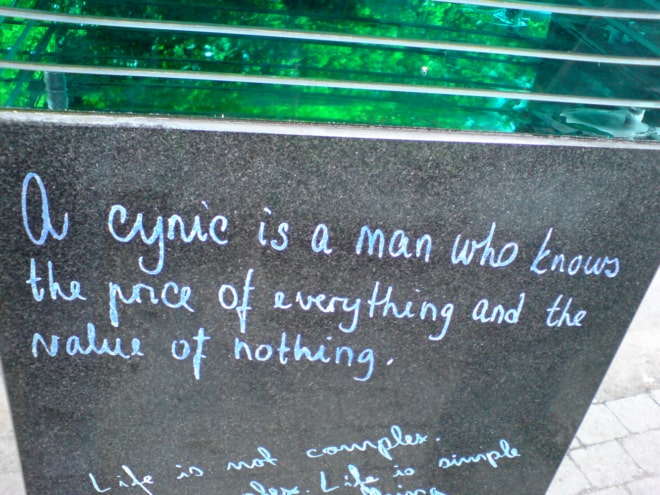 A cynic is a man who knows
the price of everything and the
value of nothing.
Life is not complex.
Life is simple